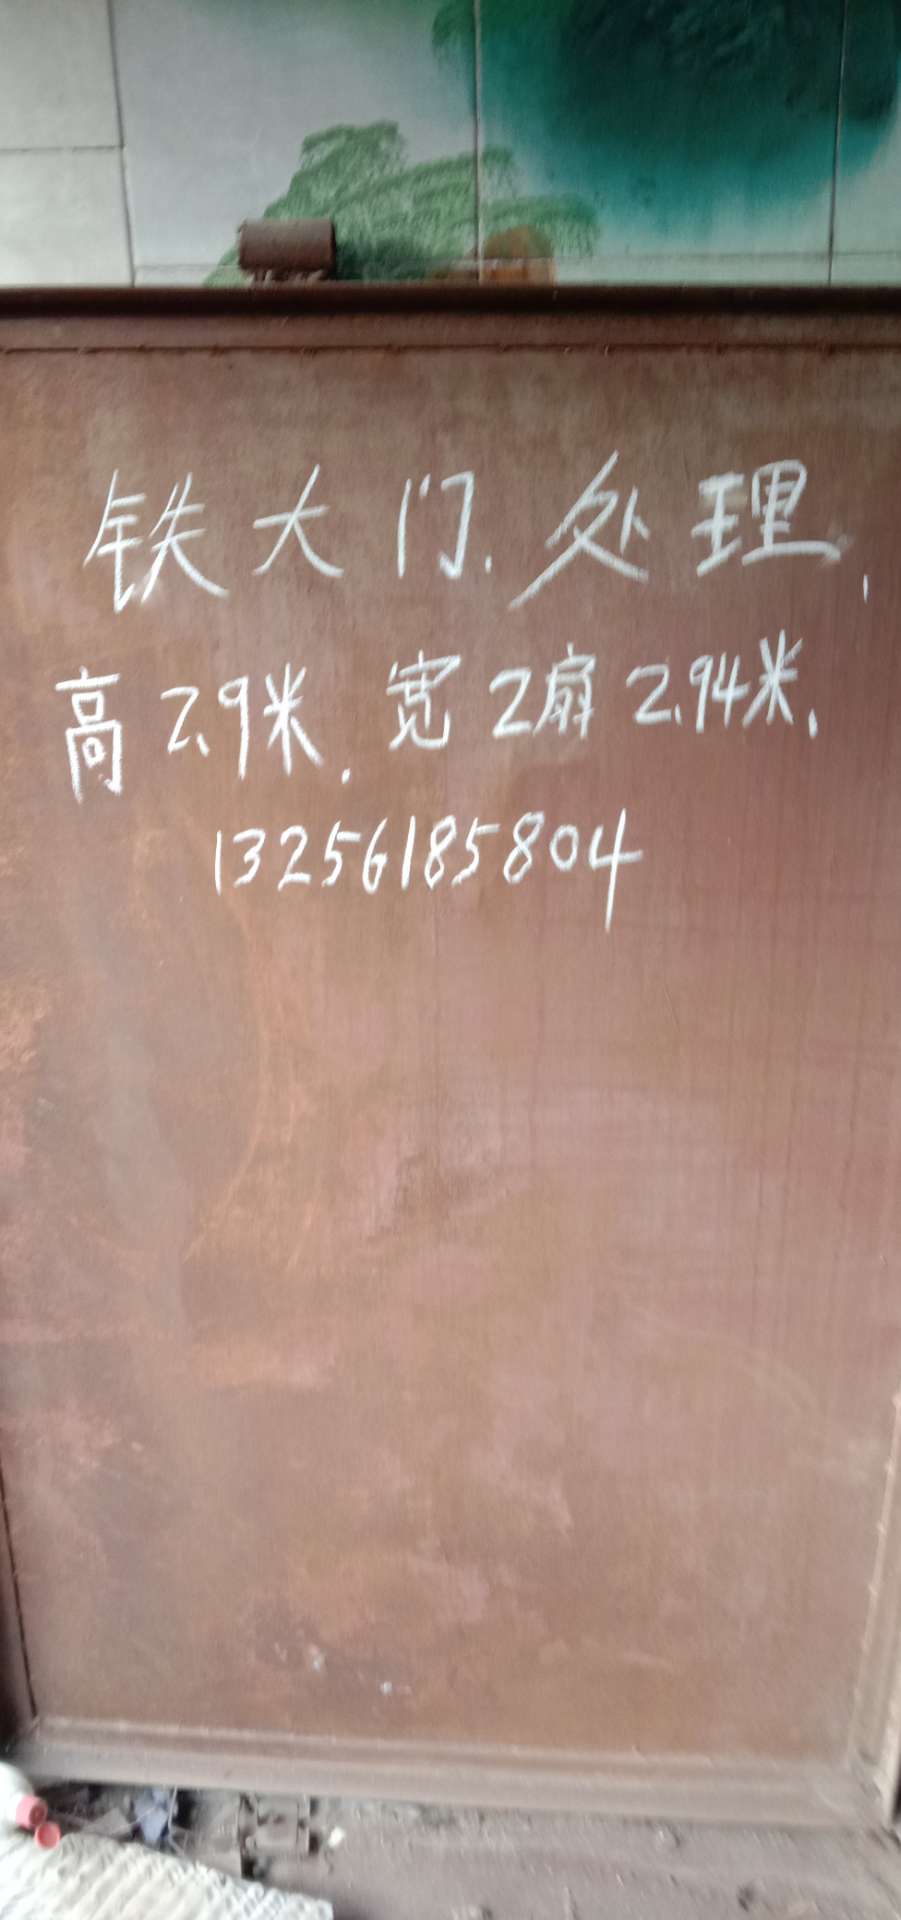 铁大门.处理,
高2.9米.宽2扇2.94米.
13256185804